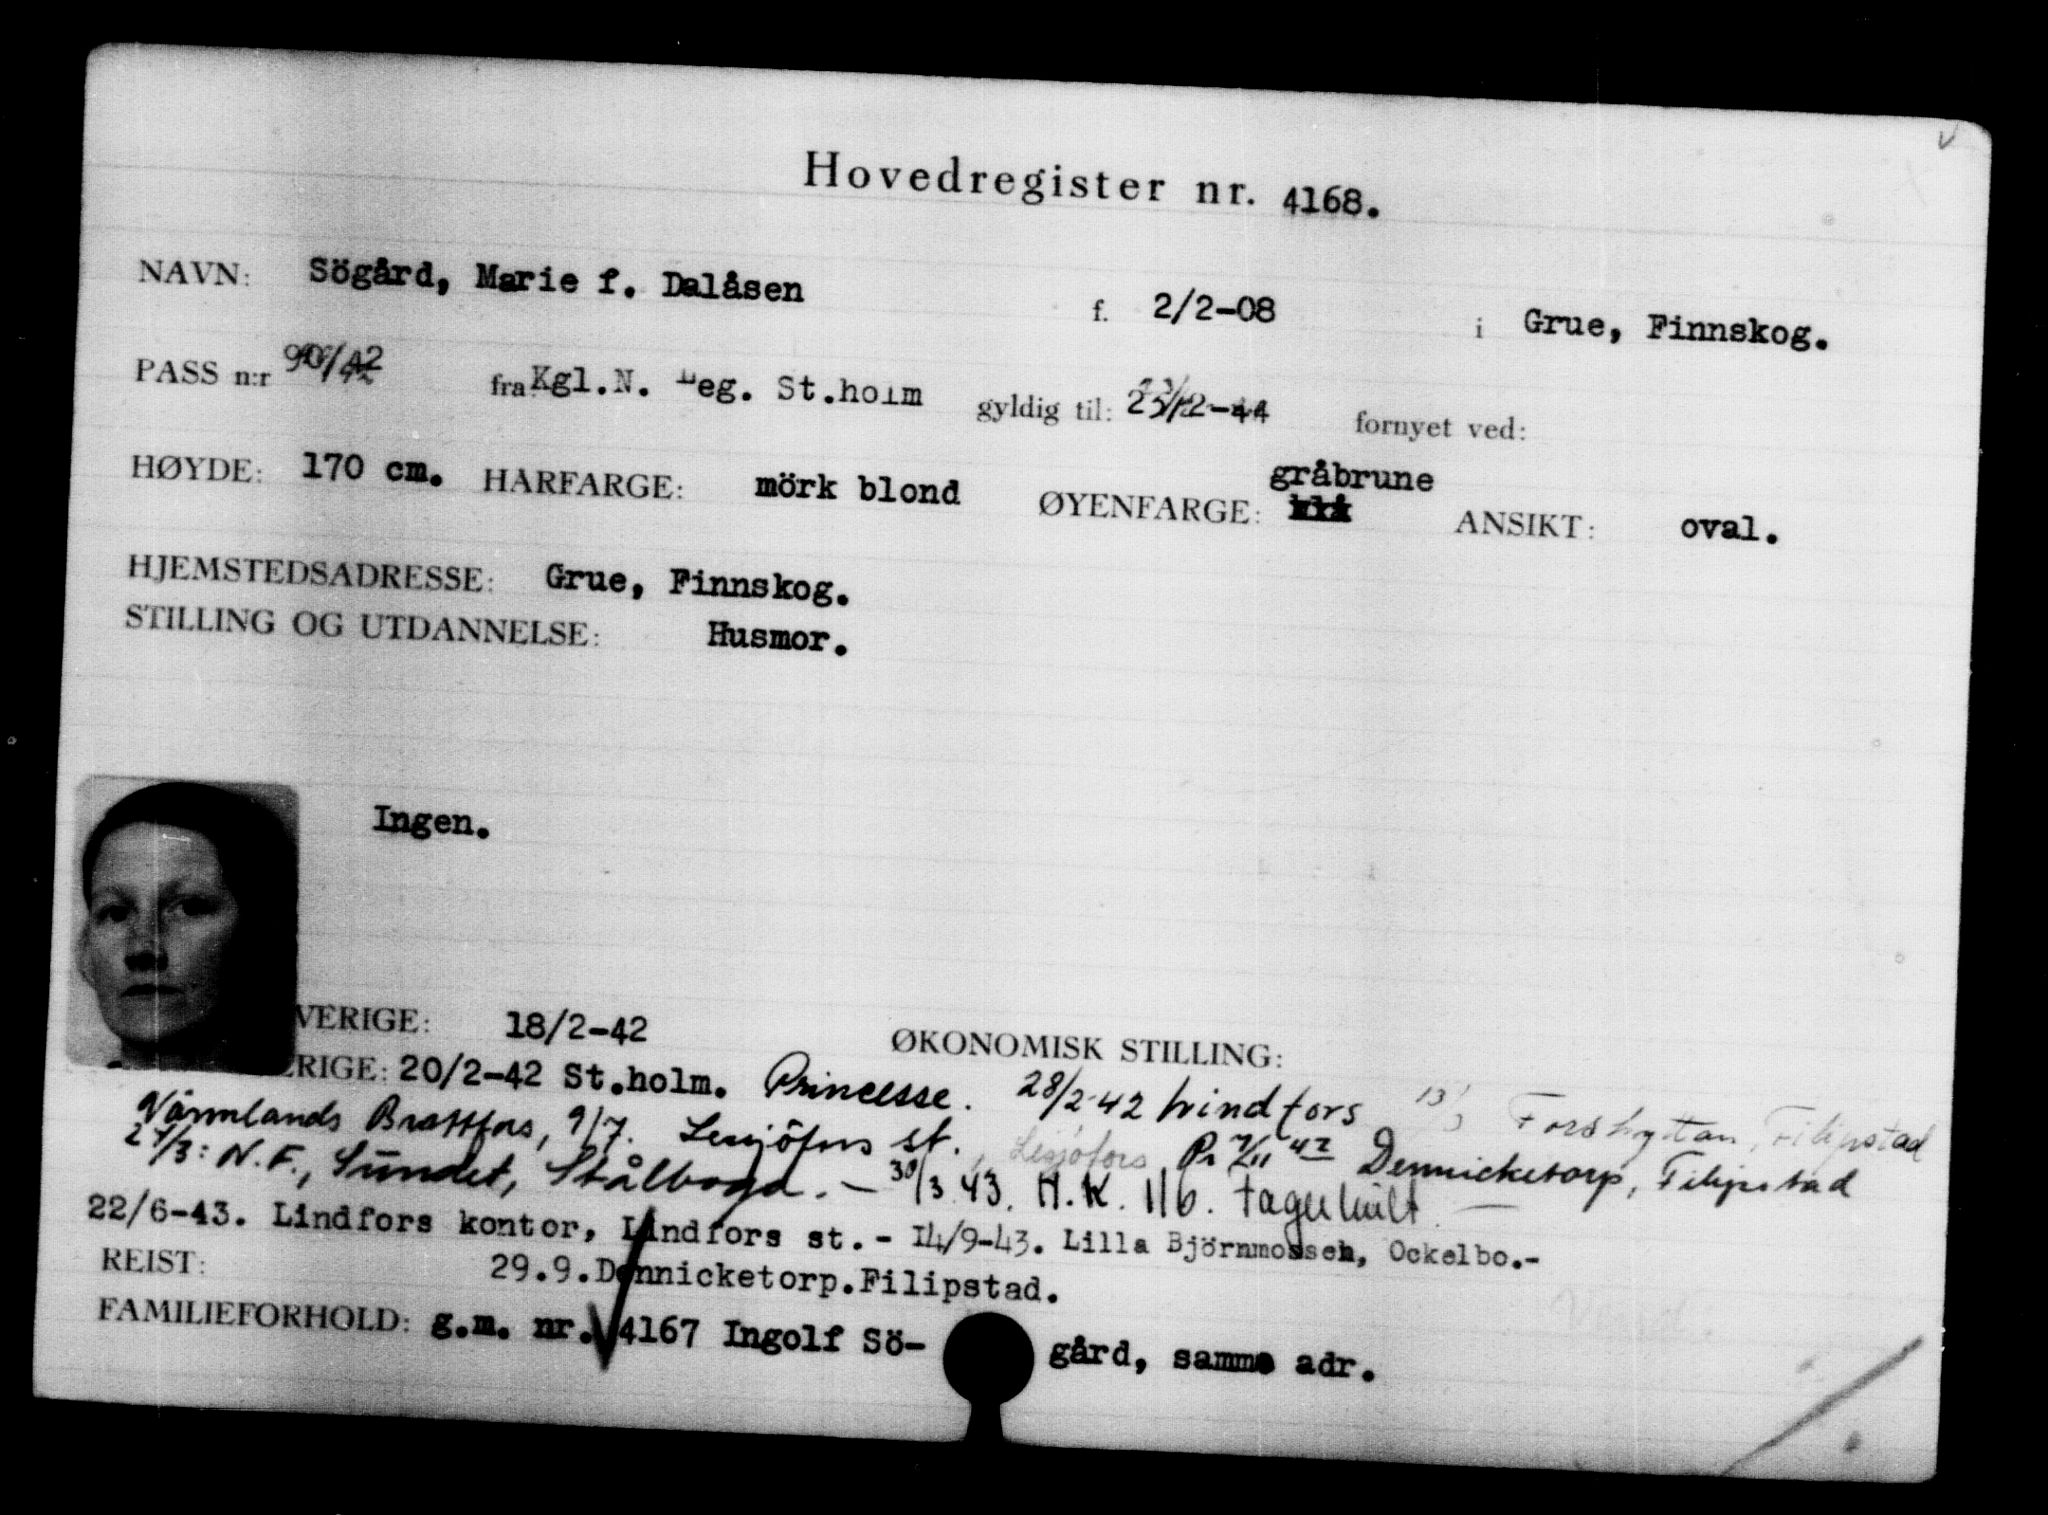 Hovedregister nr. 4168.
NAVN: Sögård, Marie f. Dalåsen f. 2/2-08 i Grue, Finnskog.
PASS n:r 90/42 fra Kgl.N. Leg. St.holm gyldig til: 23/12-44 fornyet ved:
HØYDE: 170 cm. HÅRFARGE: mörk blond ØYENFARGE: gråbrune ANSIKT: oval.
HJEMSTEDSADRESSE: Grue, Finnskog.
STILLING OG UTDANNELSE: Husmor.
Ingen.
VERIGE: 18/2-42 ØKONOMISK STILLING:
ERIGE: 20/2-42 St.holm. Princesse. 28/2-42 Lindfors Forshyttan, Filipstad
Värmlands Brattfors, 9/7. Lesjöfors st., Lesjöfors, 42 Dennicketorp, Filipstad
24/3: N.F., Sundet, Stålboga. – 30/3 43. H.K. 116. Tagelhult. –
22/6-43. Lindfors kontor, Lindfors st.- 14/9-43. Lilla Björnmossen, Ockelbo.-
REIST: 29.9.Dennicketorp.Filipstad.
FAMILIEFORHOLD: g.m. nr. 4167 Ingolf Sö- gård, samme adr.